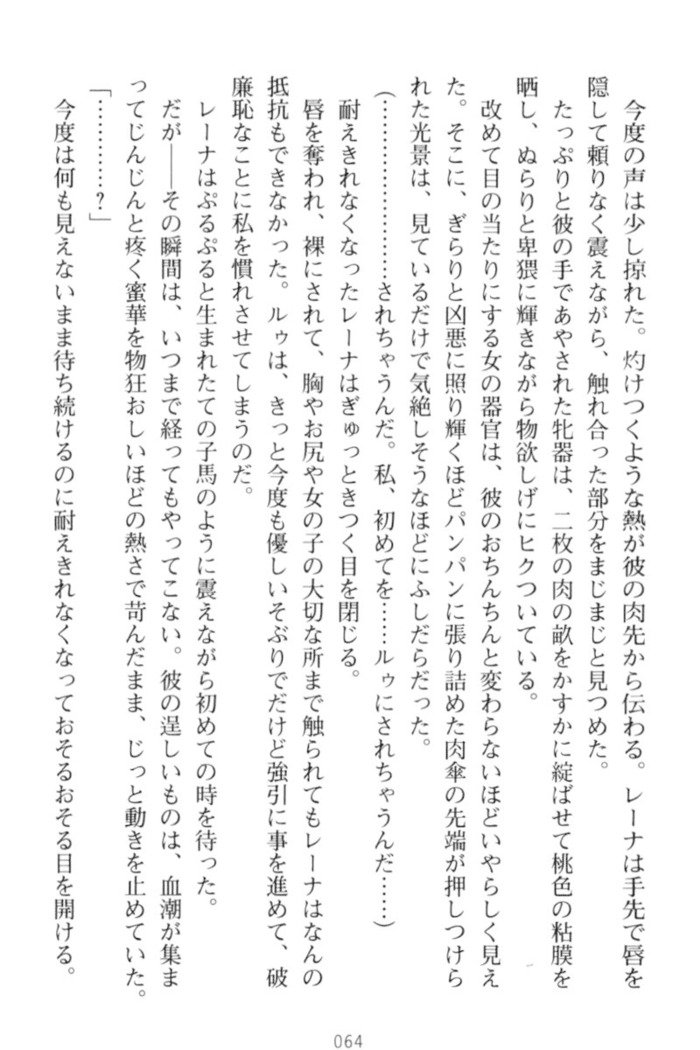 今度の声は少し掠れた。灼けつくような熱が彼の肉先から伝わる。レーナは手先で唇を
隠して頼りなく震えながら、触れ合った部分をまじまじと見つめた。
　たっぷりと彼の手であやされた牝器は、二枚の肉の畝をかすかに綻ばせて桃色の粘膜を
晒し、ぬらりと卑猥に輝きながら物欲しげにヒクついている。
　改めて目の当たりにする女の器官は、彼のおちんちんと変わらないほどいやらしく見え
た。そこに、ぎらりと凶悪に照り輝くほどパンパンに張り詰めた肉傘の先端が押しつけら
れた光景は、見ているだけで気絶しそうなほどにふしだらだった。
（…………………されちゃうんだ。私、初めてを……ルゥにされちゃうんだ……）
　耐えきれなくなったレーナはぎゅっときつく目を閉じる。
　唇を奪われ、裸にされて、胸やお尻や女の子の大切な所まで触られてもレーナはなんの
抵抗もできなかった。ルゥは、きっと今度も優しいそぶりでだけど強引に事を進めて、破
廉恥なことに私を慣れさせてしまうのだ。
　レーナはぷるぷると生まれたての子馬のように震えながら初めての時を待った。
　だが――その瞬間は、いつまで経ってもやってこない。彼の逞しいものは、血潮が集ま
ってじんじんと疼く蜜華を物狂おしいほどの熱さで苛んだまま、じっと動きを止めていた。
「…………？」
　今度は何も見えないまま待ち続けるのに耐えきれなくなっておそるおそる目を開ける。
064